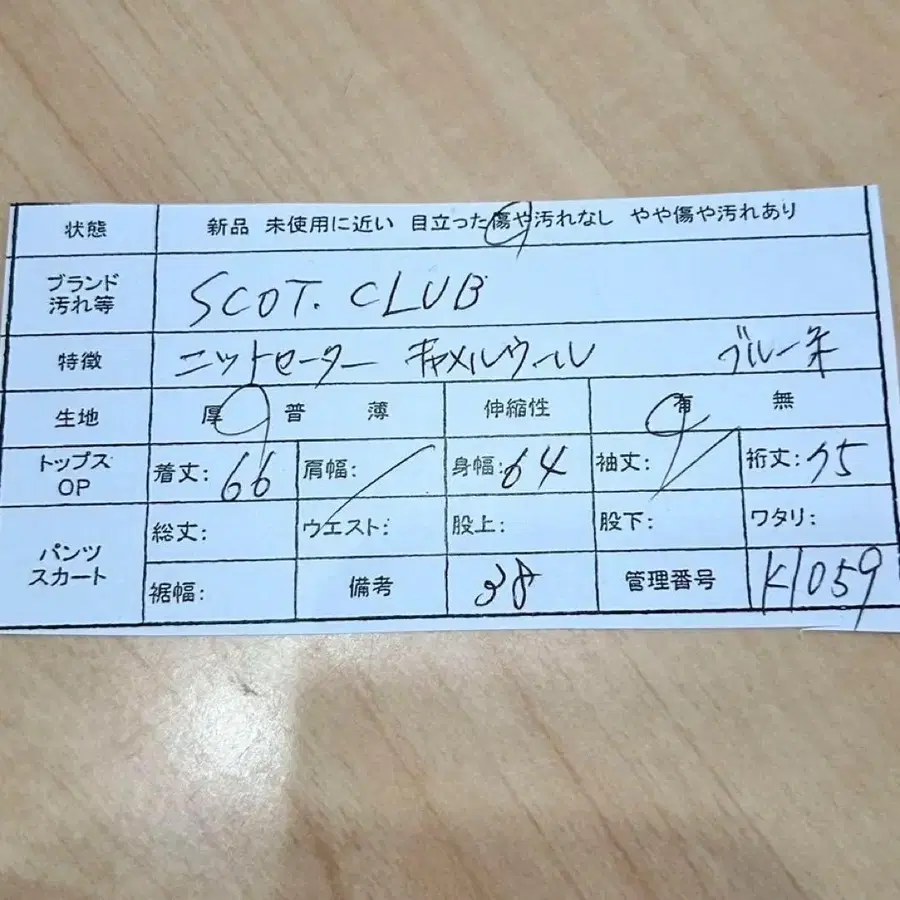 状態 新品 未使用に近い 目立った傷や汚れなし やや傷や汚れあり
ブランド
汚れ等 SCOT. CLUB
特徴 ニットセーター キャメルウール ブルー系
生地 厚 普 薄 伸縮性 有 無
トップス
OP 着丈: 66 肩幅: 身幅: 64 袖丈: 裄丈: 75
パンツ
スカート 総丈: ウエスト: 股上: 股下: ワタリ:
裾幅: 備考 38 管理番号 K1059